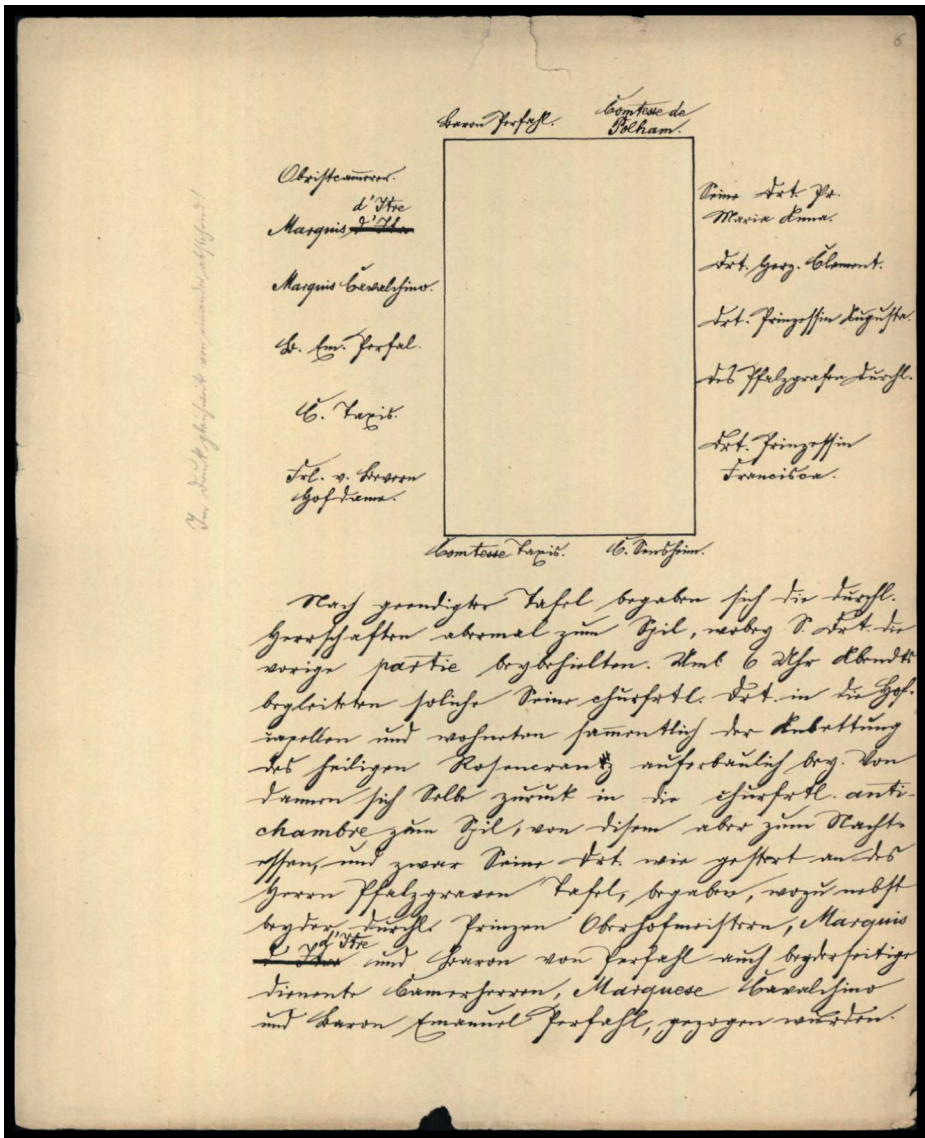 6
Baron Perfahl.
Comtesse de
Polham.
Obristcammerer.
d'Itre
Marquis d'Itre
Marquis Cavalchino.
B. Em. Perfal.
C. Taxis.
Frl. v. Bevern
Hofdame.
Seine Drt. Pr.
Maria Anna.
Drt. Herz. Clement.
Drt. Prinzessin Augusta.
des Pfalzgrafen Durchl.
Drt. Prinzessin
Francisca.
Comtesse Taxis.
C. Sensheim.
Im Druck von einander
Nach geendigter Tafel begaben sich die durchl.
Herrschaften abermal zum Spil, wobey S. Drt. die
vorige partie beybehielten. Umb 6 Uhr Abendts
begleiteten solche Seine churfrtl. Drt. in die Hof-
capellen und wohneten sammentlich der Anbettung
des heiligen Rosencrantz auferbaulich bey. Von
dannen sich Selbe zuruck in die churfrtl. anti-
chambre zum Spil, von disem aber zum Nacht-
essen, und zwar Seine Drt. wie gestert an des
Herrn Pfalzgraven Tafel, begaben, wozu nebst
beyder durchl. Prinzen Oberhofmeistern, Marquis
d'Itre
d'Itre und Baron von Perfahl auch beyderseitige
dienente Camerherren, Marquese Cavalchino
und Baron Emanuel Perfahl, gezogen wurden.